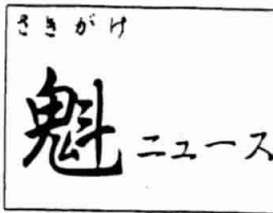 さきがけ
魁ニュース